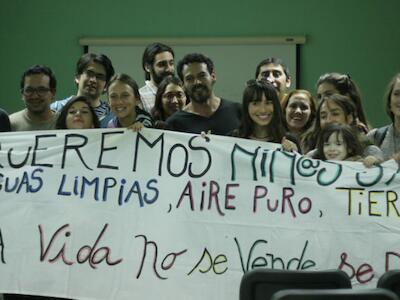 QUEREMOS NIÑ@S
AGUAS LIMPIAS, AIRE PURO,
LA Vida no se Vende se